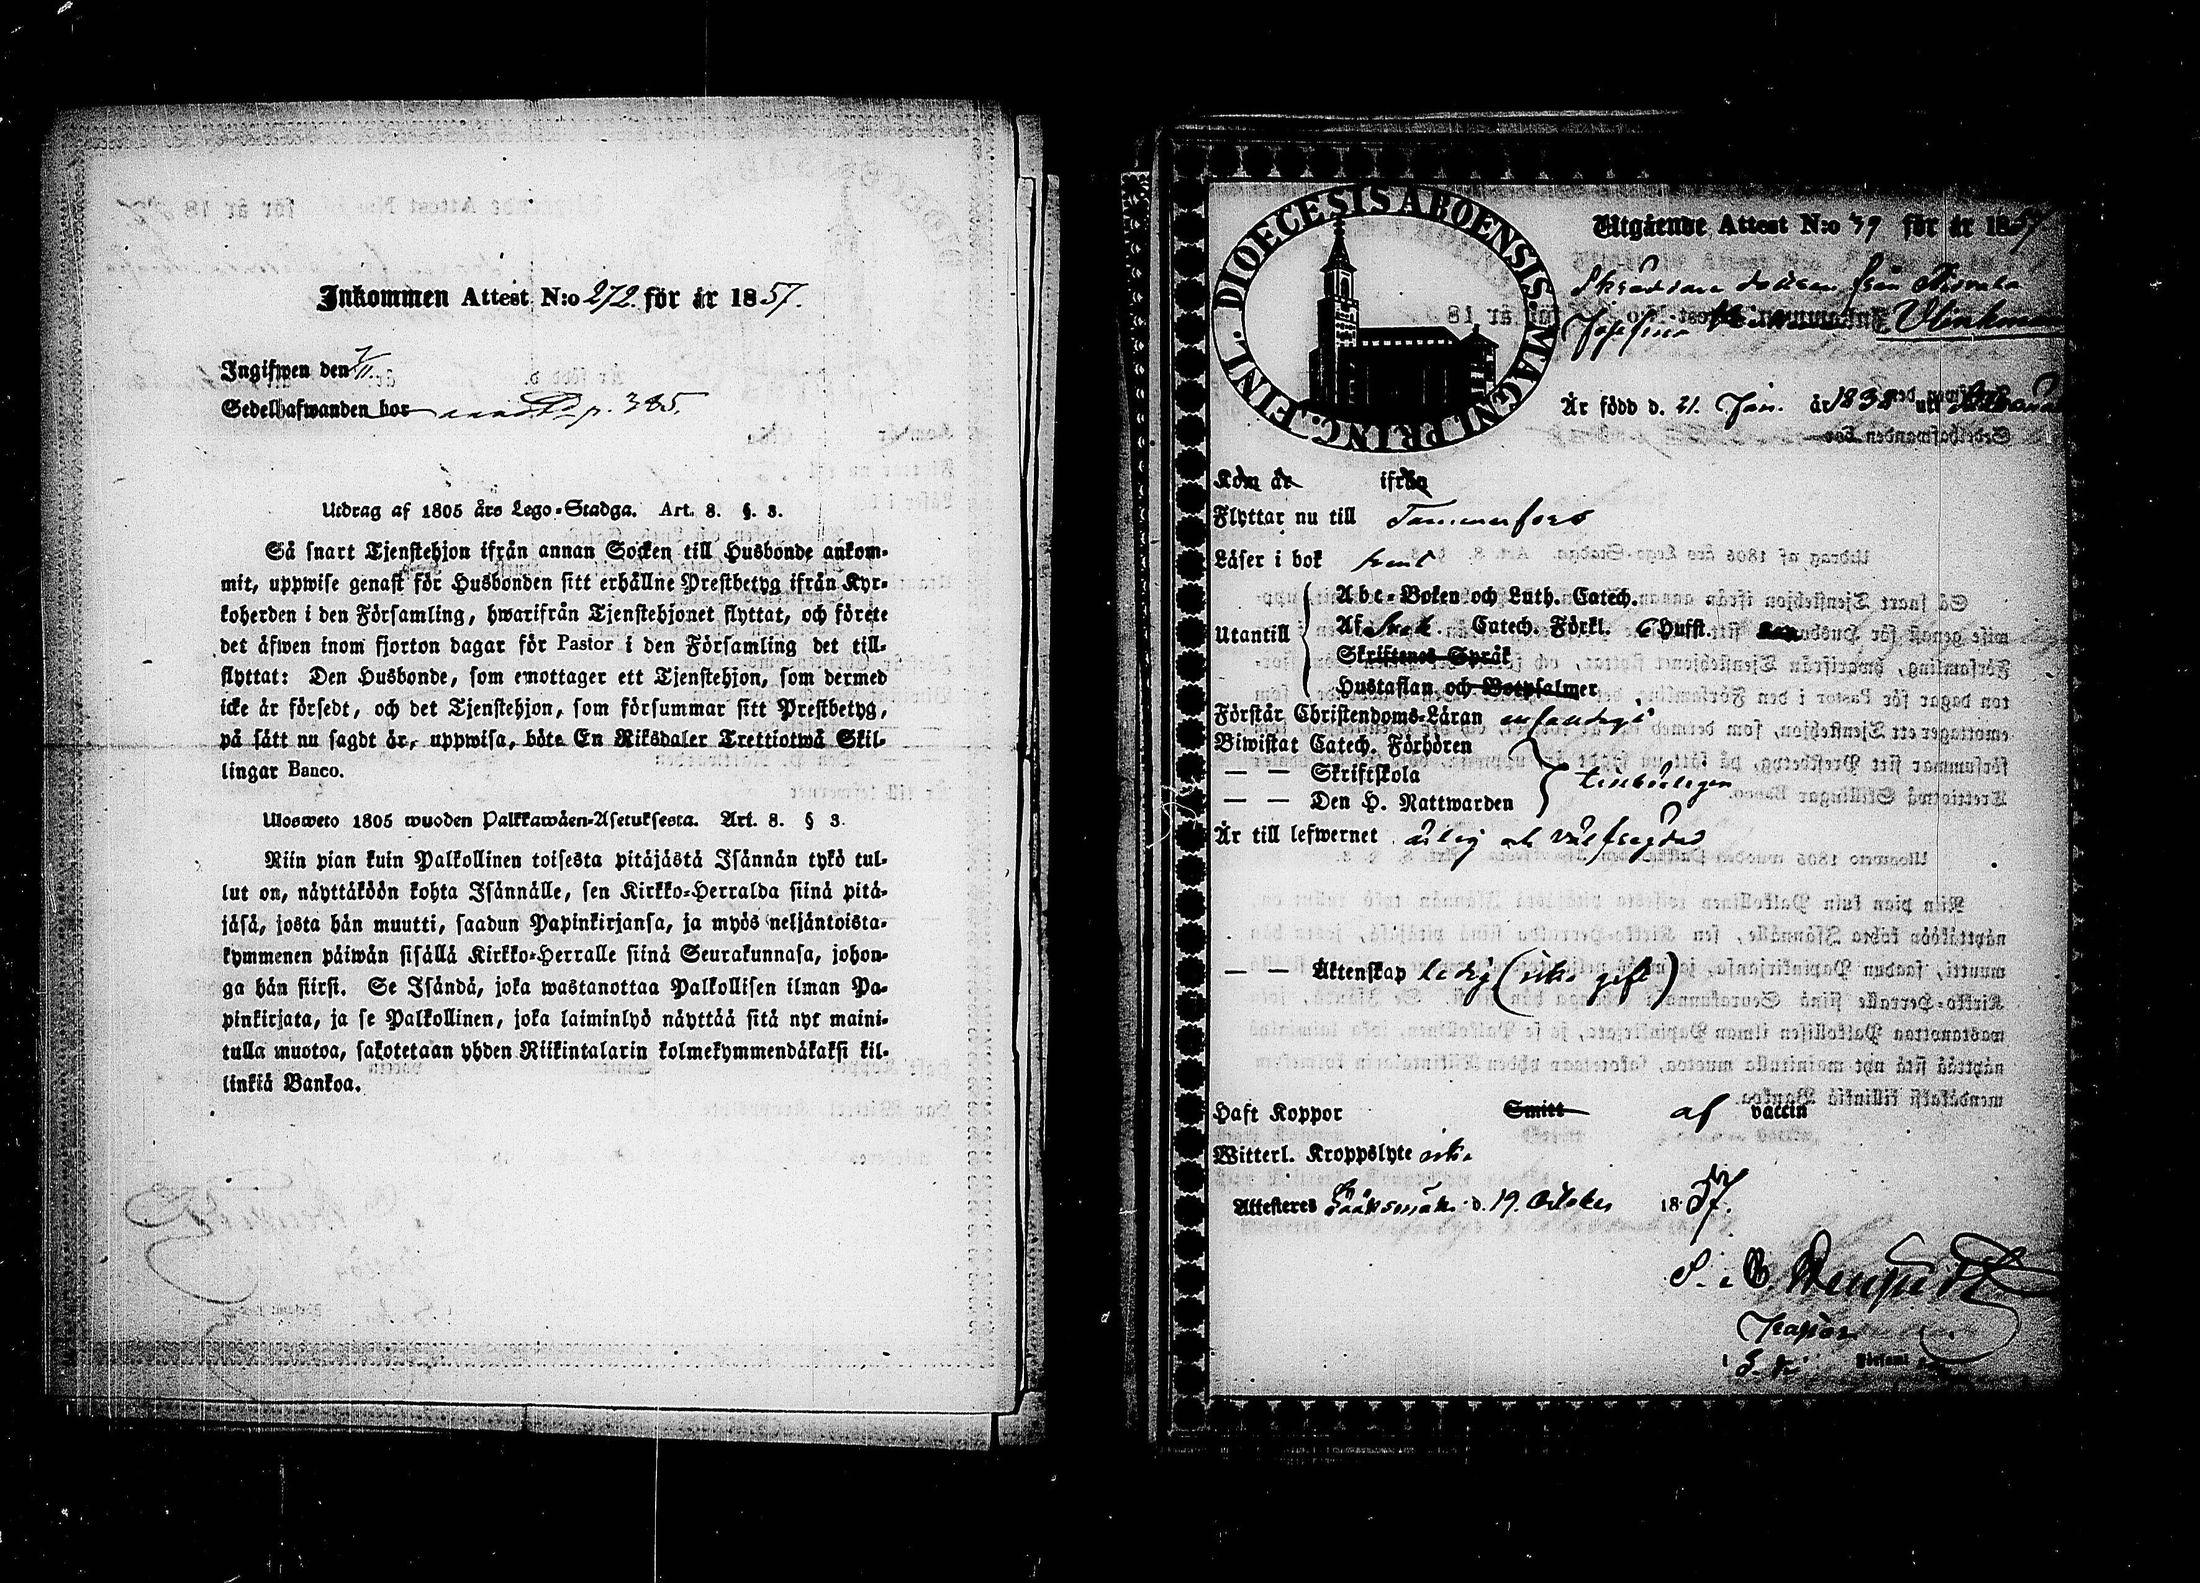 Inkommen Attest N:o 272. för år 1857.
Ingifwen den 7/11.
Sedelhafwanden bor p. 385.
Utdrag af 1805 års Lego-Stadga. Art. 8. §. 3.
Så snart Tjenstehjon ifrån annan Socken till Husbonde ankom-
mit, uppwise genast för Husbonden sitt erhållne Prestbetyg ifrån Kyr-
koherden i den Församling, hwarifrån Tjenstehjonet flyttat, och förete
det äfwen inom fjorton dagar för Pastor i den Församling det till-
flyttat: Den Husbonde, som emottager ett Tjenstehjon, som dermed
icke är försedt, och det Tjenstehjon, som försummar sitt Prestbetyg,
på sätt nu sagdt är, uppwisa, böte En Riksdaler Trettiotwå Skil-
lingar Banco.
Ulosweto 1805 wuoden Palkkawäen-Asetuksesta. Art. 8. § 3.
Niin pian kuin Palkollinen toisesta pitäjästä Isännän tykö tul-
lut on, näyttäköön kohta Isännälle, sen Kirkko-Herralda siinä pitä-
jäsä, josta hän muutti, saadun Papinkirjansa, ja myös neljäntoista-
kymmenen päiwän sisällä Kirkko-Herralle siinä Seurakunnasa, johon-
ga hän siirsi. Se Isändä, joka wastanottaa Palkollisen ilman Pa-
pinkirjata, ja se Palkollinen, joka laiminlyö näyttää sitä nyt maini-
tulla muotoa, sakotetaan yhden Riikintalarin kolmekymmendäkaksi kil-
linkiä Bankoa.
DIOECESIS ABOENSIS. MAGNI PRINC. FINL.
Utgående Attest N:o 79 för år 1857
Skräddare från
Josefina
Är född d. 21. Jan. år 1838 uti
Kom år ifrån
Flyttar nu till Tammerfors
Läser i bok
Utantill
Abc-Boken och Luth. Catech.
Af Catech. Förkl. 6 Hufst.
Skriftenes Språk
Hustaflan och Botpsalmer
Förstår Christendoms-Läran
Biwistat Catech. Förhören
— — Skriftskola
— — Den H. Nattwarden
tillbörligen
Är till lefwernet ärlig och välfrägdad
— — Äktenskap ledig (icke gift)
Haft Koppor Smitt af vaccin
Witterl. Kroppslyte icke
Attesteres Sääksmäki d. 19. October 1857.
Pastor
i Församl.